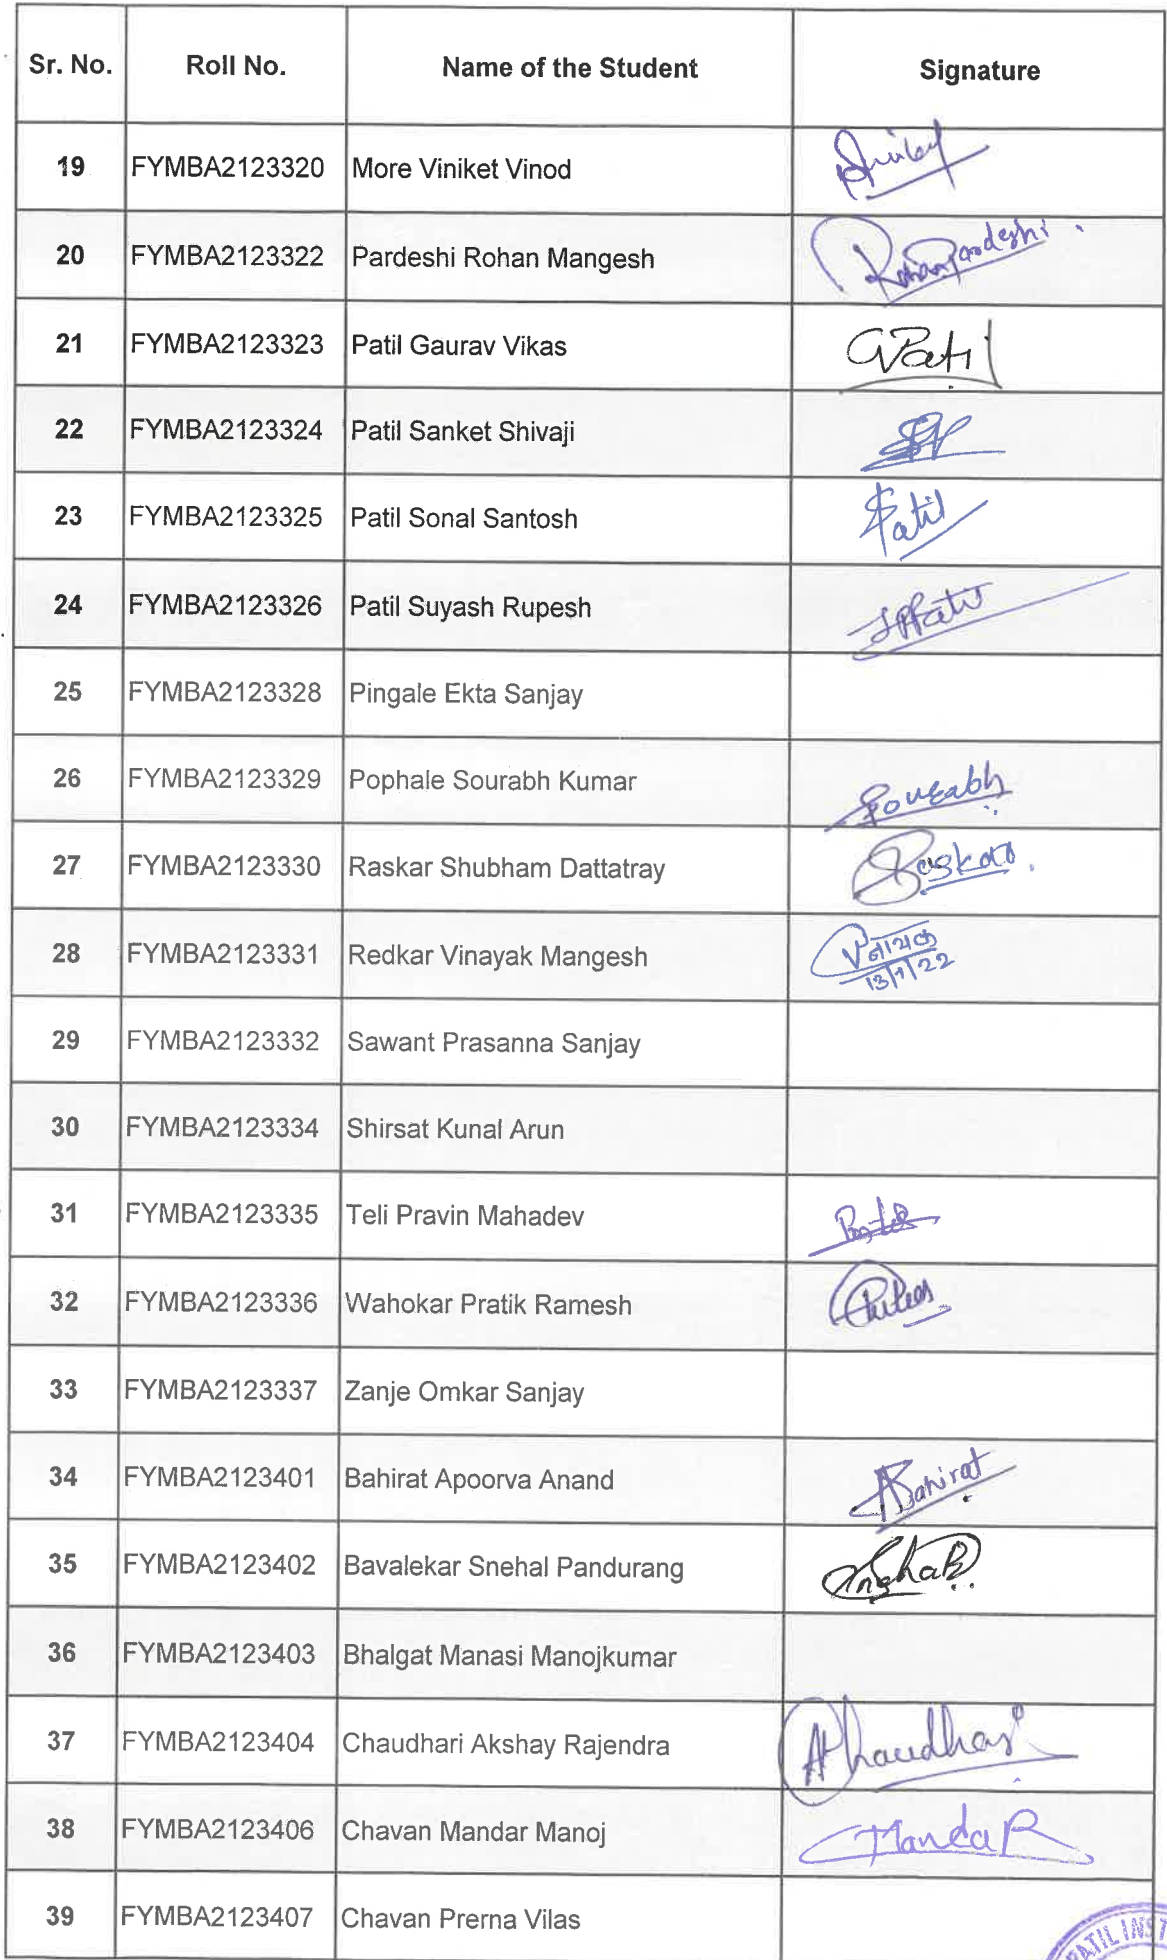 Sr. No. Roll No. Name of the Student Signature
19 FYMBA2123320 More Viniket Vinod
20 FYMBA2123322 Pardeshi Rohan Mangesh Rohan Pardeshi
21 FYMBA2123323 Patil Gaurav Vikas GPatil
22 FYMBA2123324 Patil Sanket Shivaji
23 FYMBA2123325 Patil Sonal Santosh SPatil
24 FYMBA2123326 Patil Suyash Rupesh
25 FYMBA2123328 Pingale Ekta Sanjay
26 FYMBA2123329 Pophale Sourabh Kumar Sourabh
27 FYMBA2123330 Raskar Shubham Dattatray Raskar
28 FYMBA2123331 Redkar Vinayak Mangesh विनायक
13/1/22
29 FYMBA2123332 Sawant Prasanna Sanjay
30 FYMBA2123334 Shirsat Kunal Arun
31 FYMBA2123335 Teli Pravin Mahadev
32 FYMBA2123336 Wahokar Pratik Ramesh
33 FYMBA2123337 Zanje Omkar Sanjay
34 FYMBA2123401 Bahirat Apoorva Anand ABahirat
35 FYMBA2123402 Bavalekar Snehal Pandurang
36 FYMBA2123403 Bhalgat Manasi Manojkumar
37 FYMBA2123404 Chaudhari Akshay Rajendra AChaudhari
38 FYMBA2123406 Chavan Mandar Manoj MandaR
39 FYMBA2123407 Chavan Prerna Vilas
PATIL INST